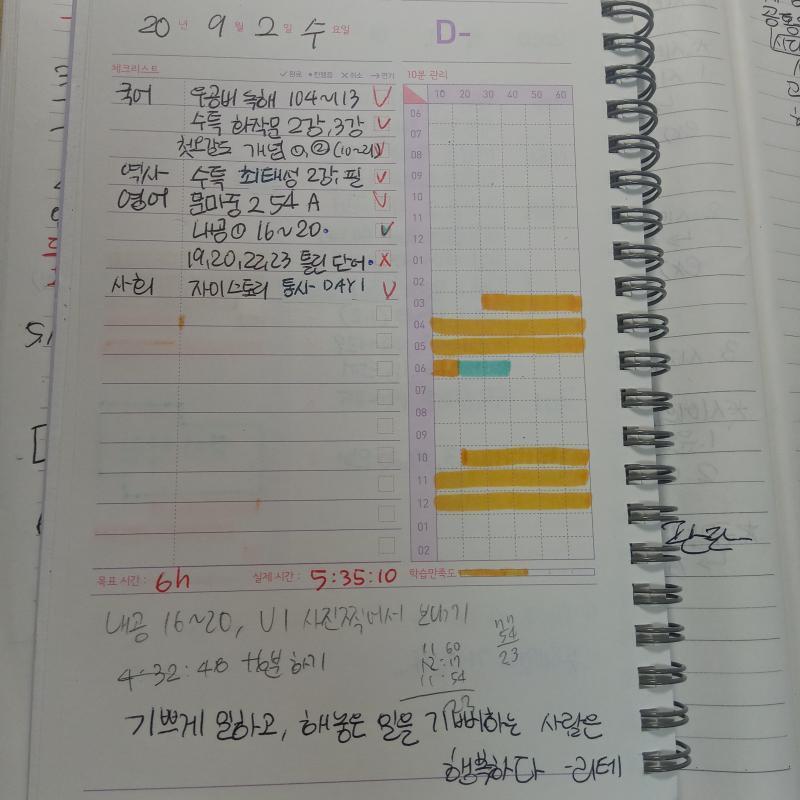 20 년 9 월 2 일 수 요일
D-
체크리스트
✓완료 •진행중 ×취소 →연기
국어 우공비 독해 104~113
수특 화작문 2강, 3강
개념 ①, ②
역사 수특 최태성 2강, 필
영어 문마중 2 54 A
내공① 16~20
19, 20, 22, 23 틀린 단어
사회 자이스토리 통사 DAY1
10분 관리
10 20 30 40 50 60
06
07
08
09
10
11
12
01
02
03
04
05
06
07
08
09
10
11
12
01
02
목표 시간 : 6h
실제 시간 : 5:35:10
학습만족도
내공 16~20, U1 사진찍어서 보내기
4:32:48 하기
11 60
12:17
11:54
54
23
기쁘게 일하고, 해놓은 일을 기뻐하는 사람은
행복하다 -괴테